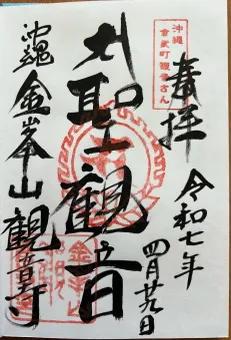 奉拝
令和七年
四月廿九日
沖縄
金武町観音さん
聖観音
沖縄
金峯山
観音寺